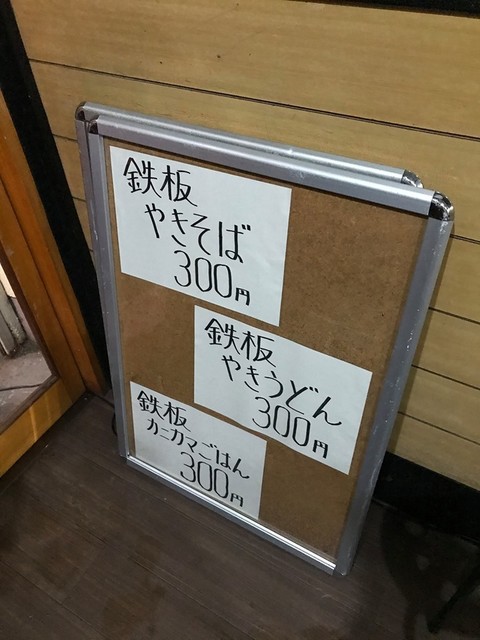 鉄板
やきそば
300円
鉄板
やきうどん
300円
鉄板
カニカマごはん
300円